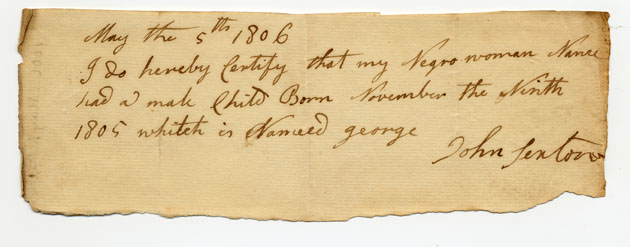 May the 5th 1806
I do hereby Certify that my Negro woman Nance
had a male Child Born November the Ninth
1805 whitch is Nameed george
John Sexton